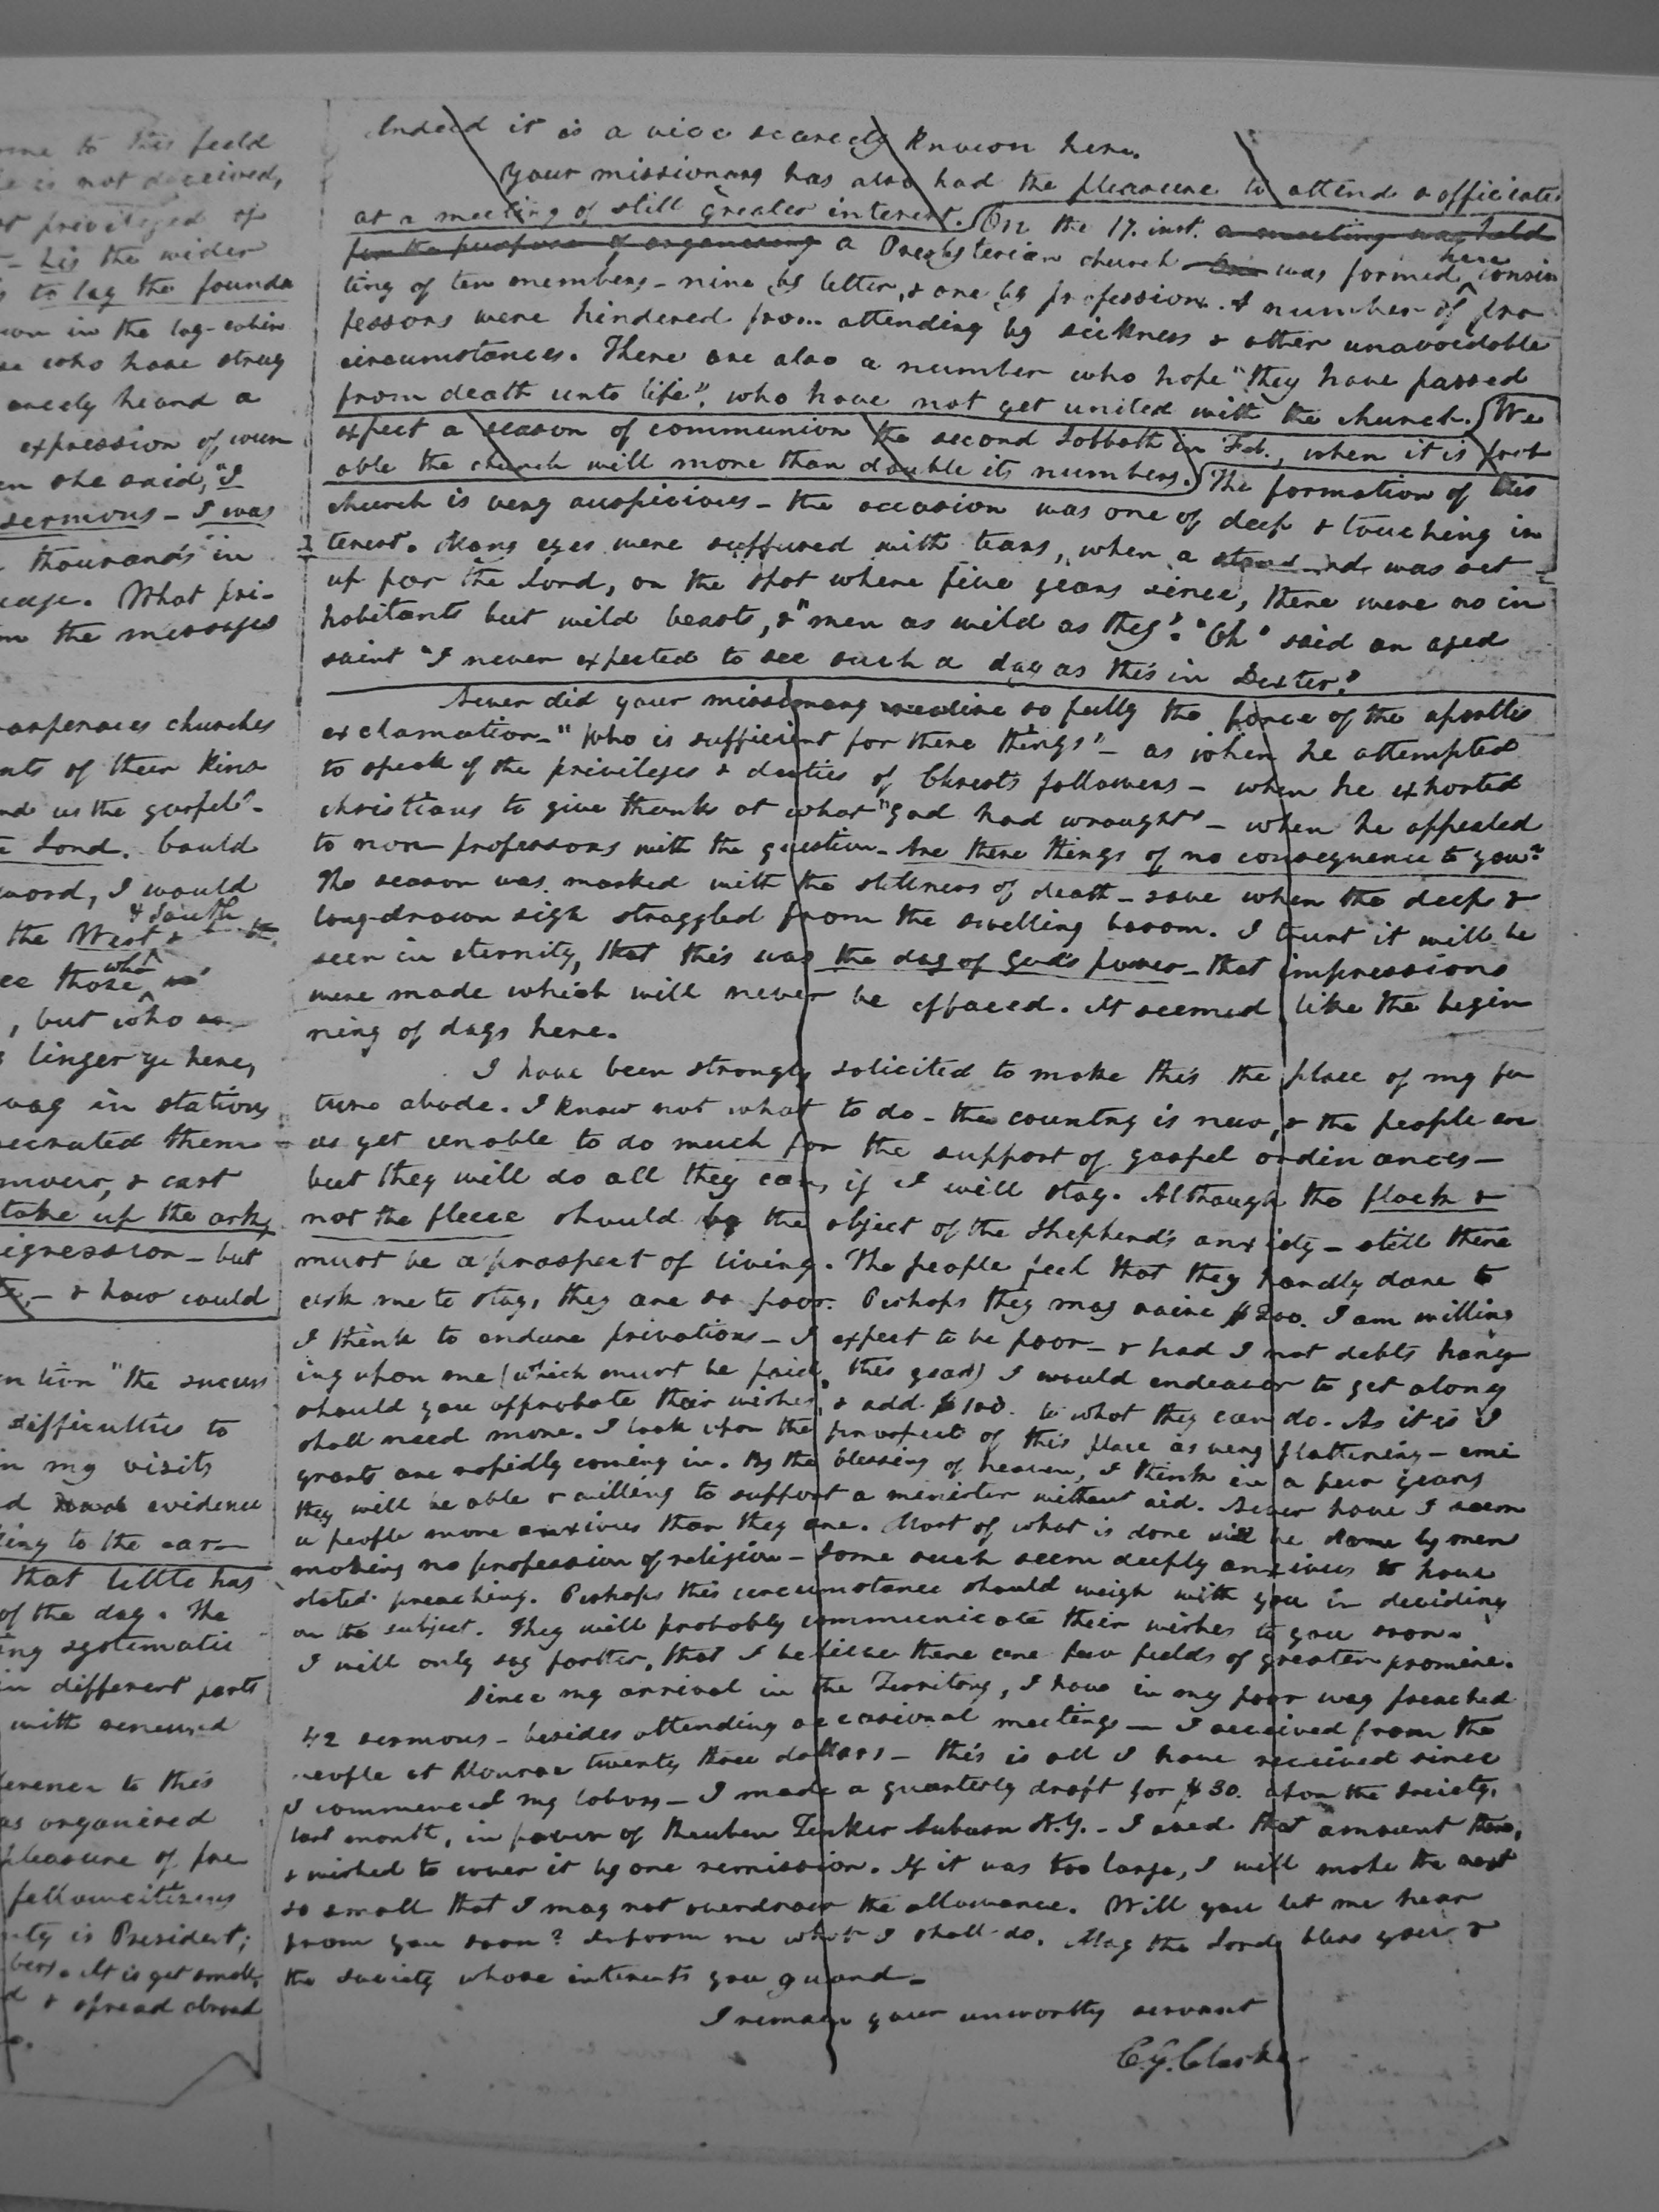 ome to this field
e is not deceived,
st privileged of
his the wider
s to lay the founda
ion in the log-cabin
se who have strug
arcely heard a
expression of, wom
en she said, "I
sermons - I was
thousands" in
eage. What pri-
om the messages
asperaces churches
nts of their kins
nd us the gospel" -
e Lord. Could
word, I would
& South
the West &
who
ee those
, but who
s linger ye here,
way in stations
secrated them
mover, & cast
take up the ark,
igression - but
- & how could
ention "the success
difficulties to
in my visits
d evidence
ling to the ear
that little has
of the day. The
ing systematic
in different parts
with renewed
ference to this
as organized
pleasure of pre
fellowcitizens
nty is President;
bers. It is yet small,
d & spread abroad
Indeed it is a vice scarcely known here.
Your missionary has also had the pleasure to attend & officiate
at a meeting of still greater interest. On the 17. inst. a meeting was held
for the purpose of organizing a Presbyterian church was formed here consis
ting of ten members - nine by letter, & one by profession. A number of pro
fessors were hindered from attending by sickness & other unavoidable
circumstances. There are also a number who hope "they have passed
from death unto life", who have not yet united with the church. We
expect a season of communion the second Sabbath in Feb., when it is prob
able the church will more than double its numbers. The formation of this
church is very auspicious - the occasion was one of deep & touching in
terest. Many eyes were suffused with tears, when a standard was set
up for the Lord, on the spot where five years since, there were no in
habitants but wild beasts, & "men as wild as they". "Oh" said an aged
saint "I never expected to see such a day as this in Dexter."
Never did your missionary realize so fully the force of the apostles
exclamation - "Who is sufficient for these things" - as when he attempted
to speak of the privileges & duties of Christs followers - when he exhorted
christians to give thanks at what "God had wrought" - when he appealed
to non-professors with the question - Are these things of no consequence to you?
The season was marked with the stillness of death - save when the deep &
long-drawn sigh straggled from the swelling bosom. I trust it will be
seen in eternity, that this was the day of God's power - that impressions
were made which will never be effaced. It seemed like the begin
ning of days here.
I have been strongly solicited to make this the place of my fu
ture abode. I know not what to do - the country is new, & the people are
as yet unable to do much for the support of gospel ordinances -
but they will do all they can, if I will stay. Although the flock &
not the fleece should be the object of the Shepherd's anxiety - still there
must be a prospect of living. The people feel that they hardly dare to
ask me to stay, they are so poor. Perhaps they may raise $200. I am willing
I think to endure privations - I expect to be poor - & had I not debts hang
ing upon me (which must be paid, this year) I would endeavor to get along
should you approbate their wishes, & add $100. to what they can do. As it is I
shall need more. I look upon the prospect of this place as very flattering - emi
grants are rapidly coming in. By the blessing of heaven, I think in a few years
they will be able & willing to support a minister without aid. Never have I seen
a people more anxious than they are. Most of what is done will be done by men
making no profession of religion - Some such seem deeply anxious to have
stated preaching. Perhaps this circumstance should weigh with you in deciding
on the subject. They will probably communicate their wishes to you soon.
I will only say farther, that I believe there are few fields of greater promise.
Since my arrival in the Territory, I have in my poor way preached
42 sermons - besides attending occasional meetings - I received from the
people at Monroe twenty three dollars - this is all I have received since
I commenced my labors - I made a quarterly draft for $30. upon the Society,
last month, in favor of Reuben Tinker Auburn N.Y. - I owed that amount there,
& wished to cover it by one remission. If it was too large, I will make the next
so small that I may not overdraw the allowance. Will you let me hear
from you soon? Inform me what I shall do. May the Lord bless you &
the society whose interests you guard -
I remain your unworthy servant
C.G. Clarke